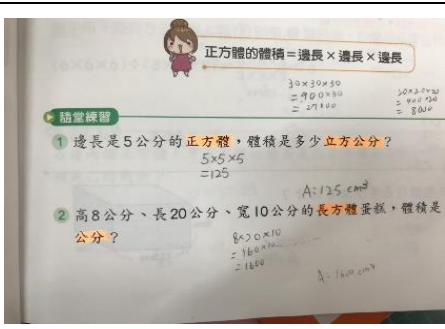 正方體的體積=邊長×邊長×邊長
30×30×30
=900×30
=27000
20×20×20
=400×20
=8000
隨堂練習
1 邊長是5公分的正方體,體積是多少立方公分?
5×5×5
=125
A:125 cm³
2 高8公分、長20公分、寬10公分的長方體蛋糕,體積是
公分?
8×20×10
=160×10
=1600
A:1600 cm³